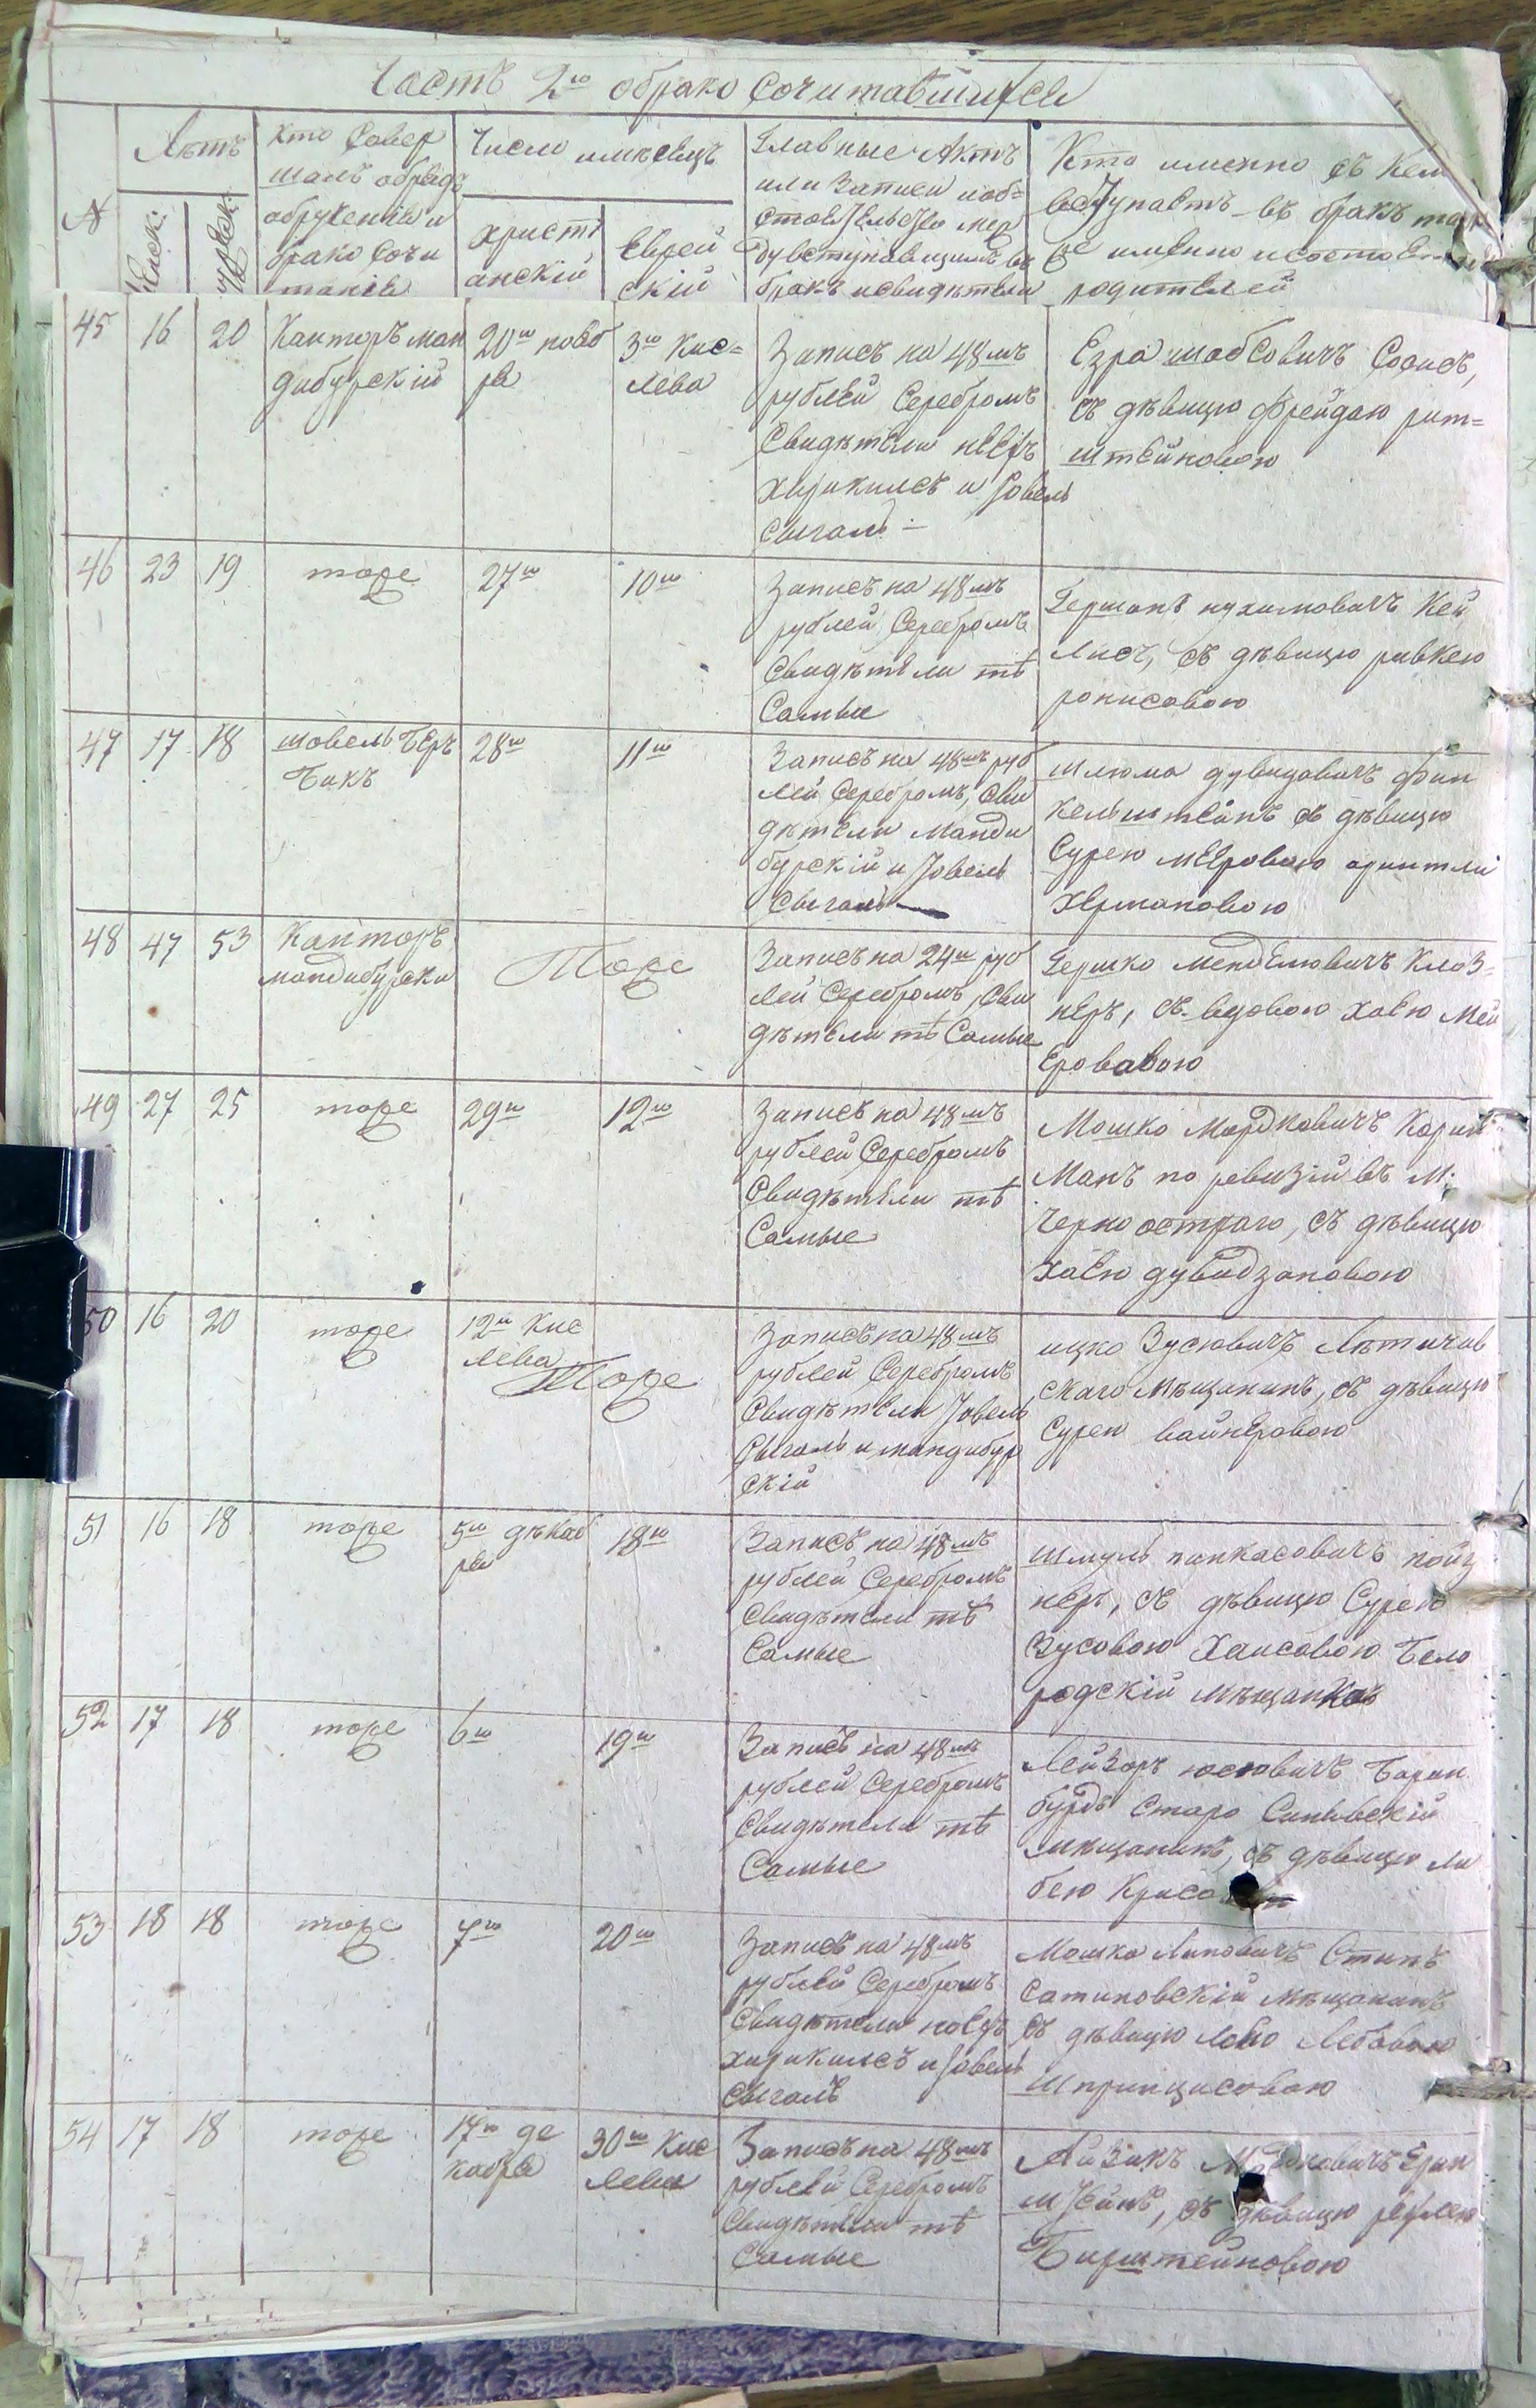 Часть 2я о брако Сочитавшихся
№
Лѣтъ
Женск:
мужск:
Кто Совер
шалъ обрядъ
обрученія и
брако Сочи
танія
Число и мѣсяцъ
христі
анскій
Еврей
скій
Главные Актъ
или Записи и об=
стоятельства меж
ду вступающими въ
бракъ и свидѣтели
Кто именно съ кем
вступаетъ въ бракъ так
же именно и состоян
родителей
45
16
20
Канторъ ман
дибурскій
20го нояб
ря
3го Кис=
лева
Запись на 48мъ
рублей Серебромъ
Свидѣтели
и Іовель
Сыгалъ
Езра шабсовичъ Сосисъ,
съ дѣвицю Фрейдою рит=
штейновою
46
23
19
тоже
27го
10го
Запись на 48мъ
рублей Серебромъ
Свидѣтели тѣ
Самые
Гершонъ нухимовичъ Кей
лисъ, съ дѣвицю ривкею
ронисовою
47
17
18
шовель Бер
Бакъ
28го
11го
Запись на 48мъ руб
лей Серебромъ, Сви
дѣтели Манди
бурскій и Іовель
Сыгалъ
шлюма дувидовичъ Фин
кельштейнъ съ дѣвицю
Сурею мееровою
Хермановою
48
47
53
Канторъ
мандибурски
Тоже
Запись на 24и руб
лей Серебромъ, Сви
дѣтели тѣ Самые
Гершко Менделювичъ Клоз=
неръ, съ вдовою хаею Мей
еровавою
49
27
25
тоже
29го
12го
Запись на 48мъ
рублей Серебромъ
Свидѣтели тѣ
Самые
Мошко Мордковичъ Корин
манъ по ревизіи въ м:
Черно остраго, съ дѣвицю
хаею дувидзоновою
50
16
20
тоже
12го Кис
лева
Тоже
Запись на 48мъ
рублей Серебромъ
Свидѣтели Іовель
Сыгалъ и мандибур
скій
ицко Зусювичъ Лѣтичив
скаго мѣщанинъ, съ дѣвицю
Сурею вайнеровою
51
16
18
тоже
5го дѣкаб
ря
18го
Запись на 48мъ
рублей Серебромъ
Свидѣтели тѣ
Самые
Шмуль пинкасовичъ пойз
неръ, съ дѣвицю Сурею
Зусовою Хаисовою Бело
родскій мѣщанкою
52
17
18
тоже
6го
19го
Запись на 48мъ
рублей Серебромъ
Свидѣтели тѣ
Самые
Лейзоръ юсювичъ Барин
бурдъ Старо Синявскій
мѣщанинъ, съ дѣвицю ли
бею
53
18
18
тоже
7го
20го
Запись на 48мъ
рублей Серебромъ
Свидѣтели
и Іовель
Сыгалъ
Мошко Липовичъ Стипъ
Сатановскій мѣщанинъ
съ дѣвицю
Шпринцисовою
54
17
18
тоже
17го де
кабря
30го Кис
лева
Запись на 48мъ
рублей Серебромъ
Свидѣтели тѣ
Самые
Айзикъ
съ дѣвицю
Бирштейновою